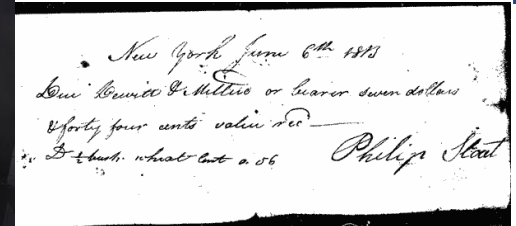 New York June 6th 1813
Due Dewitt & or bearer seven dollars
& forty four cents value rec
D ½ bush. wheat 56
Philip Stoat